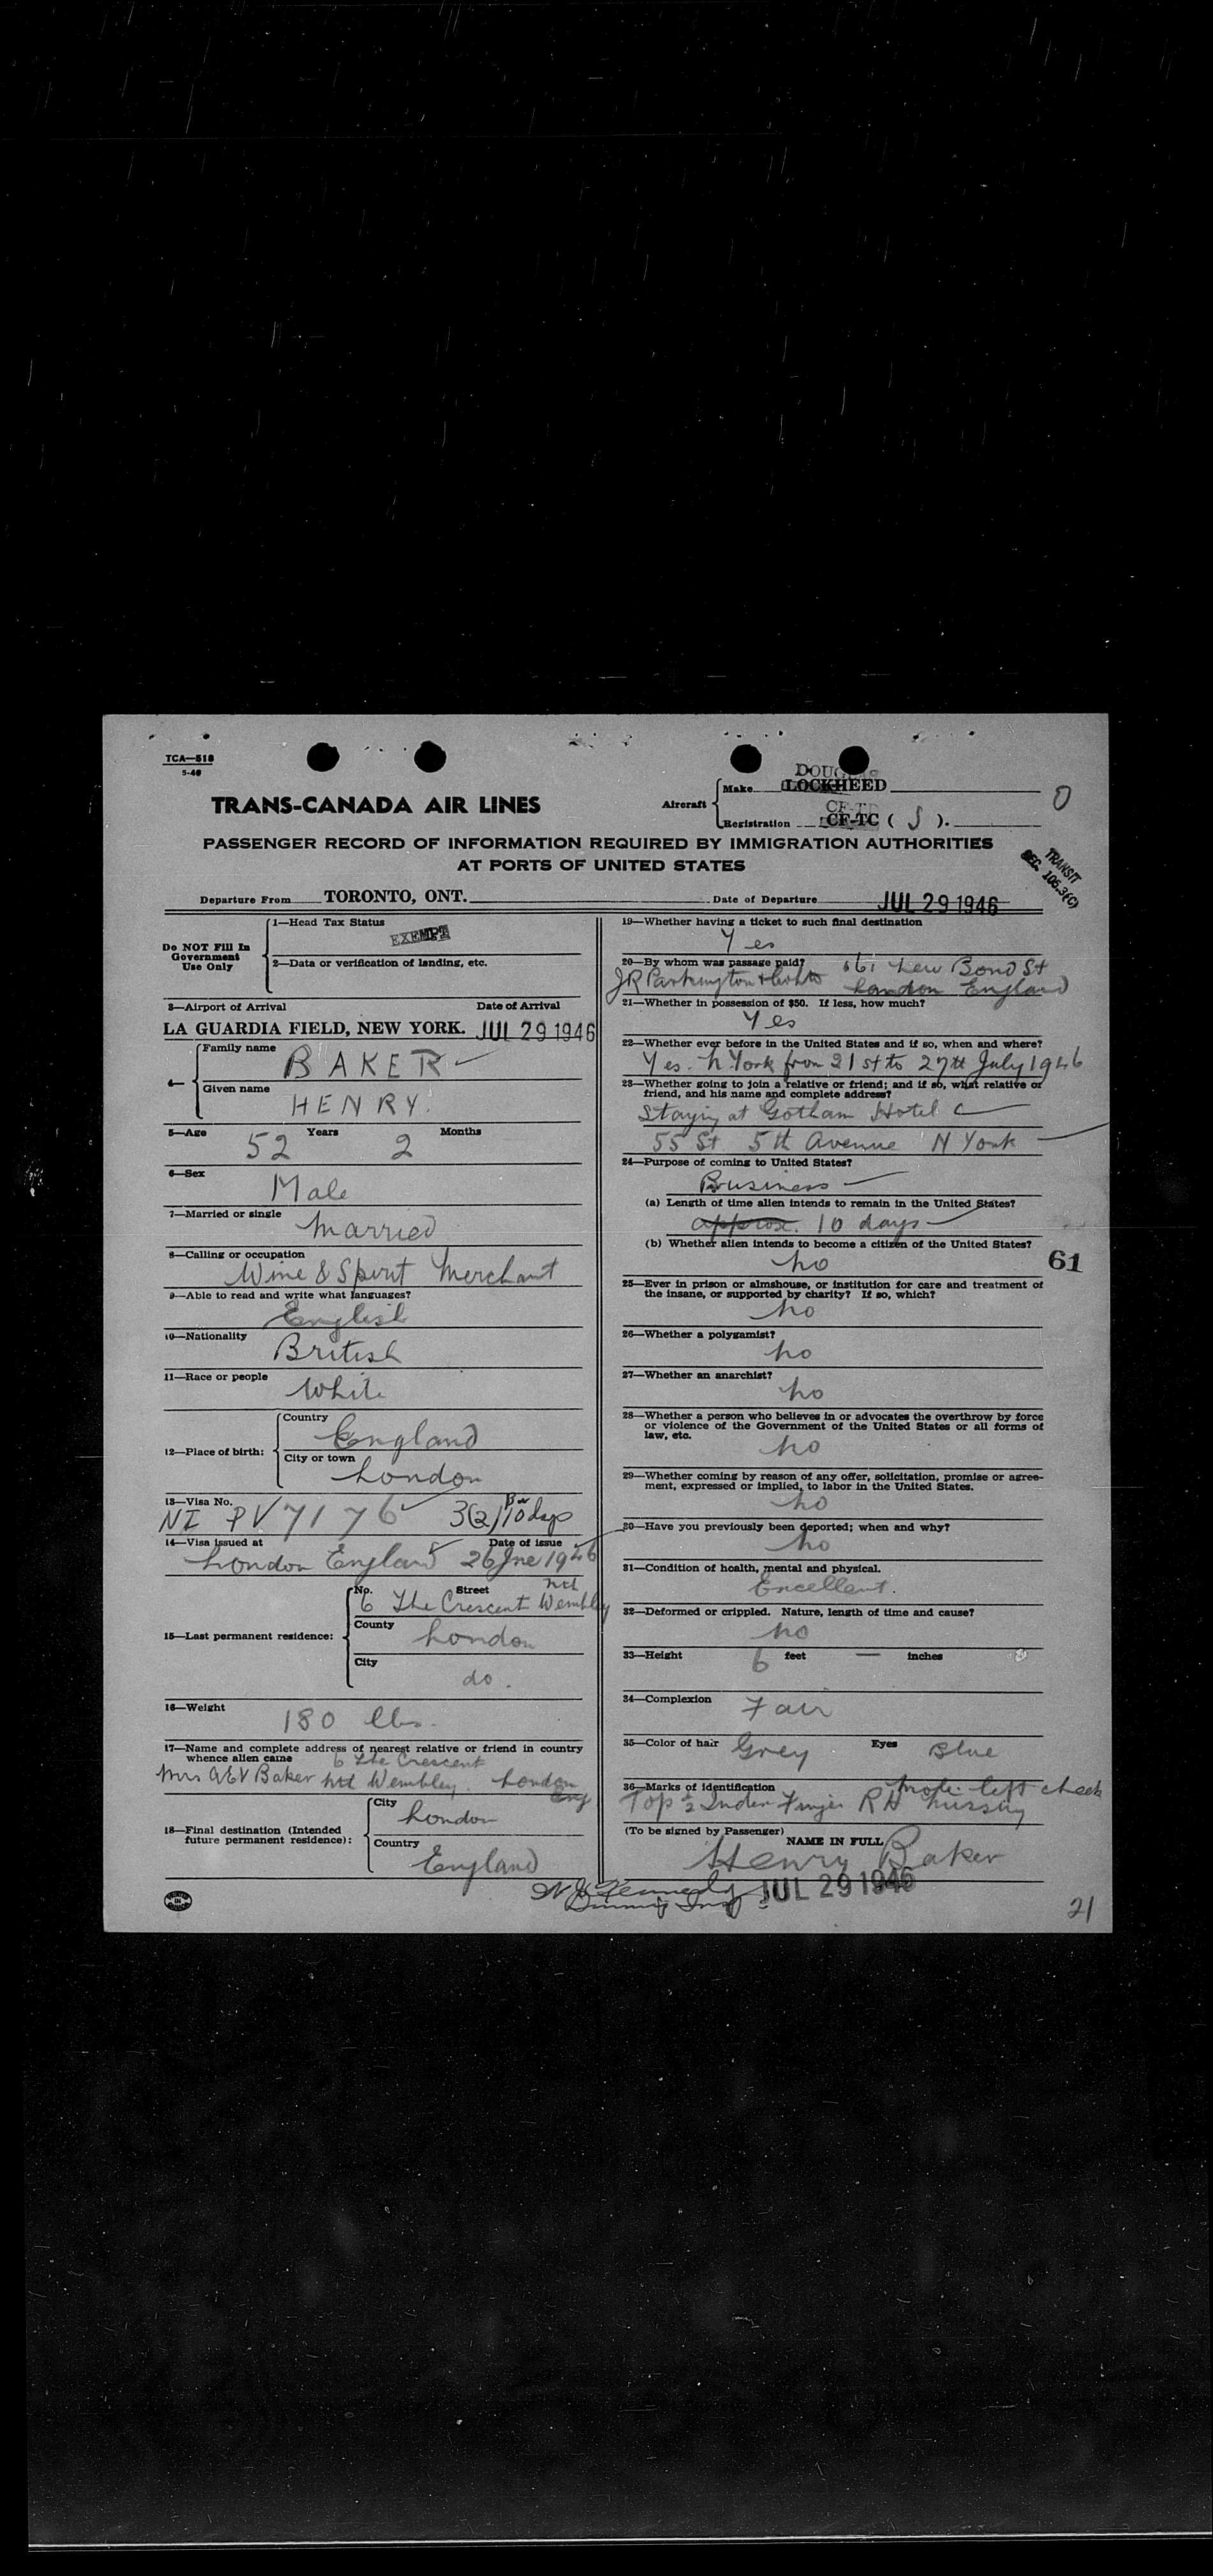 TCA—518
5-40
TRANS-CANADA AIR LINES
Aircraft
Make DOUGLAS LOCKHEED
Registration CF-TD CF-TC ( J ).
O
PASSENGER RECORD OF INFORMATION REQUIRED BY IMMIGRATION AUTHORITIES
AT PORTS OF UNITED STATES
TRANSIT
SEC. 105.3(C)
Departure From TORONTO, ONT. Date of Departure JUL 29 1946
Do NOT Fill In Government Use Only
1—Head Tax Status
EXEMPT
2—Data or verification of landing, etc.
3—Airport of Arrival Date of Arrival
LA GUARDIA FIELD, NEW YORK. JUL 29 1946
4— Family name BAKER
Given name HENRY.
5—Age 52 Years 2 Months
6—Sex
Male
7—Married or single
Married
8—Calling or occupation
Wine & Spirit Merchant
9—Able to read and write what languages?
English
10—Nationality
British
11—Race or people
White
12—Place of birth: Country
England
City or town
London
13—Visa No.
NI PV 7176 3(2) 10 days
14—Visa issued at Date of issue
London England 26 Jne 1946
15—Last permanent residence: No. Street
6 The Crescent Wembley
County
London
City
do.
16—Weight
180 lbs.
17—Name and complete address of nearest relative or friend in country
whence alien came 6 The Crescent
Mrs Baker Wembley. London
Eng
18—Final destination (Intended
future permanent residence):
City
London
Country
England
19—Whether having a ticket to such final destination
Yes
20—By whom was passage paid? 161 New Bond St
JR Parkington London England
21—Whether in possession of $50. If less, how much?
Yes
22—Whether ever before in the United States and if so, when and where?
Yes. N. York from 21st to 27th July 1946
23—Whether going to join a relative or friend; and if so, what relative or
friend, and his name and complete address?
Staying at Gotham Hotel
55 St 5th Avenue N York
24—Purpose of coming to United States?
Business
(a) Length of time alien intends to remain in the United States?
approx. 10 days
(b) Whether alien intends to become a citizen of the United States?
no
61
25—Ever in prison or almshouse, or institution for care and treatment of
the insane, or supported by charity? If so, which?
no
26—Whether a polygamist?
no
27—Whether an anarchist?
no
28—Whether a person who believes in or advocates the overthrow by force
or violence of the Government of the United States or all forms of
law, etc.
no
29—Whether coming by reason of any offer, solicitation, promise or agree-
ment, expressed or implied, to labor in the United States.
no
30—Have you previously been deported; when and why?
no
31—Condition of health, mental and physical.
Excellent.
32—Deformed or crippled. Nature, length of time and cause?
no
33—Height 6 feet — inches
34—Complexion Fair
35—Color of hair Grey Eyes Blue
36—Marks of identification mole left cheek
Top ½ Index Finger RH missing
(To be signed by Passenger)
NAME IN FULL
Henry Baker
Kennedy JUL 29 1946
21